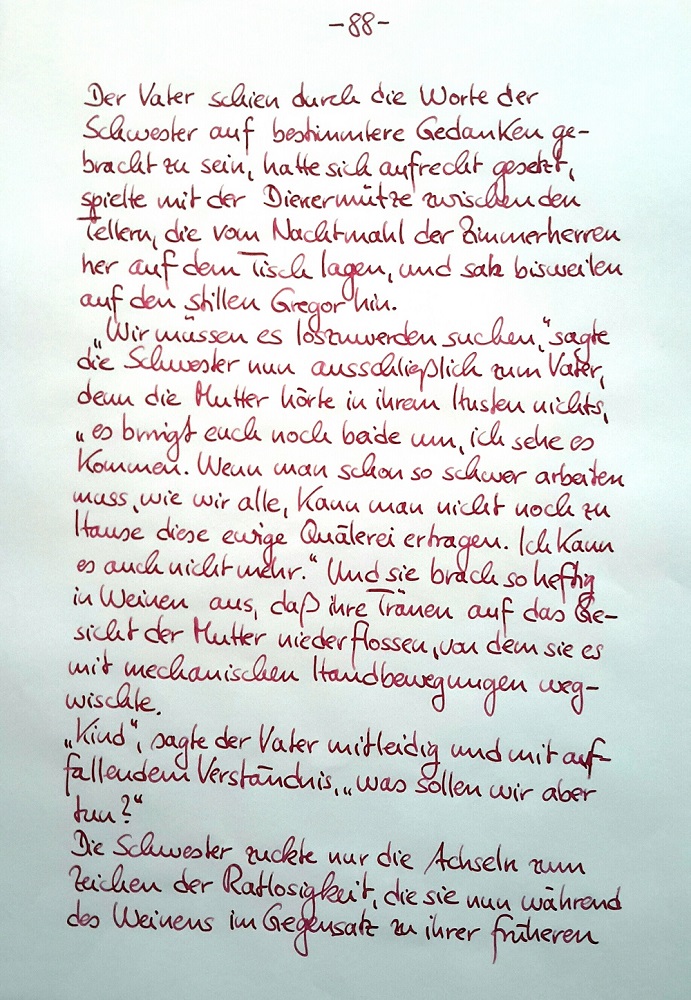 -88-
Der Vater schien durch die Worte der
Schwester auf bestimmtere Gedanken ge-
bracht zu sein, hatte sich aufrecht gesetzt,
spielte mit der Dienermütze zwischen den
Tellern, die vom Nachtmahl der Zimmerherren
her auf dem Tisch lagen, und sah bisweilen
auf den stillen Gregor hin.
„Wir müssen es loszuwerden suchen,“ sagte
die Schwester nun ausschließlich zum Vater,
denn die Mutter hörte in ihrem Husten nichts,
„es bringt euch noch beide um, ich sehe es
kommen. Wenn man schon so schwer arbeiten
muss, wie wir alle, kann man nicht noch zu
Hause diese ewige Quälerei ertragen. Ich kann
es auch nicht mehr.“ Und sie brach so heftig
in Weinen aus, daß ihre Tränen auf das Ge-
sicht der Mutter niederflossen, von dem sie es
mit mechanischen Handbewegungen weg-
wischte.
„Kind“, sagte der Vater mitleidig und mit auf-
fallendem Verständnis, „was sollen wir aber
tun?“
Die Schwester zuckte nur die Achseln zum
Zeichen der Ratlosigkeit, die sie nun während
des Weinens im Gegensatz zu ihrer früheren